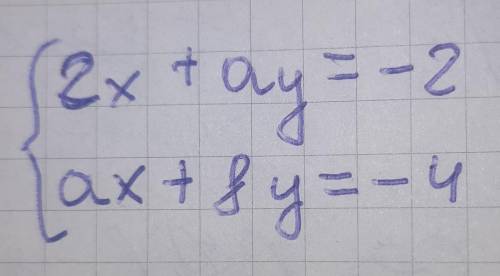 2x + ay = -2
ax + 8y = -4